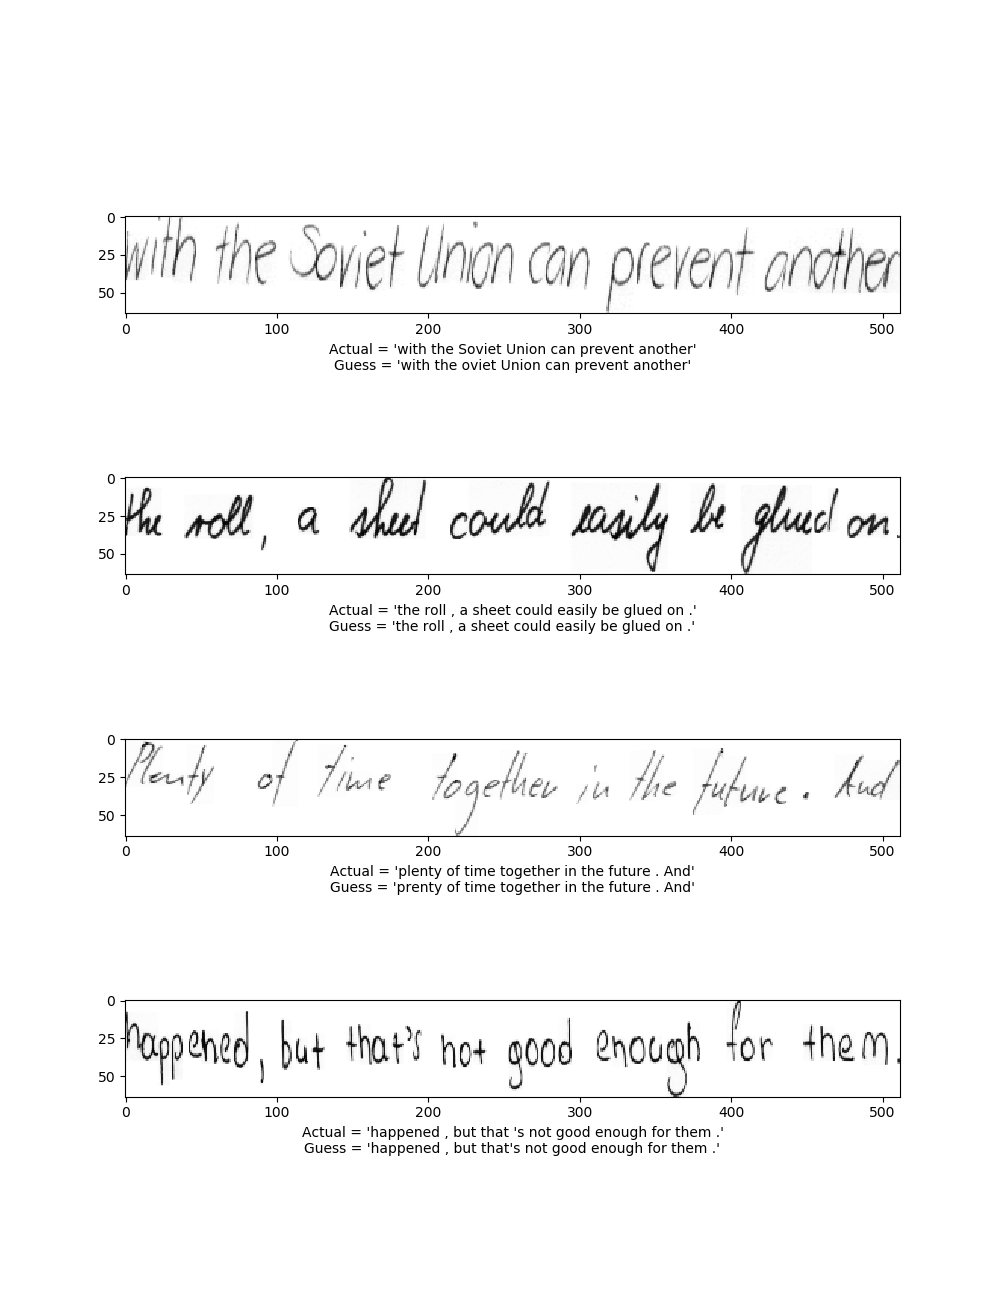 0
25
50
with the Soviet Union can prevent another
0 100 200 300 400 500
Actual = 'with the Soviet Union can prevent another'
Guess = 'with the oviet Union can prevent another'
0
25
50
the roll, a sheet could easily be glued on.
0 100 200 300 400 500
Actual = 'the roll , a sheet could easily be glued on .'
Guess = 'the roll , a sheet could easily be glued on .'
0
25
50
Plenty of time together in the future. And
0 100 200 300 400 500
Actual = 'plenty of time together in the future . And'
Guess = 'prenty of time together in the future . And'
0
25
50
happened, but that's not good enough for them.
0 100 200 300 400 500
Actual = 'happened , but that 's not good enough for them .'
Guess = 'happened , but that's not good enough for them .'